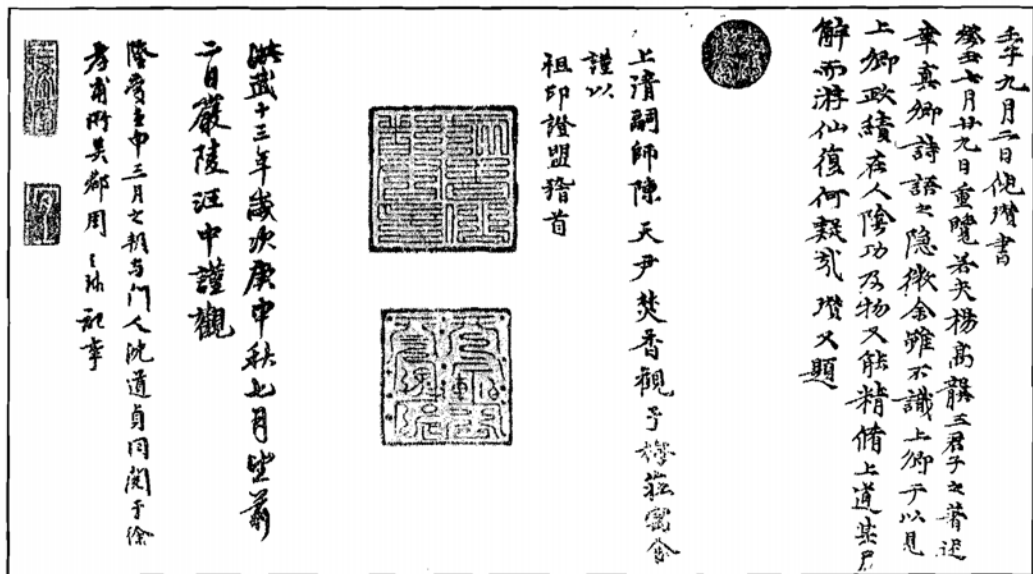 壬子九月二日倪瓚書
癸丑七月廿九日重覽若夫楊高龔三君子之著述
幸真卿詩語之隱微余雖不識上卿于以見
上卿政績在人陰功及物又能精脩上道其尸
解而游仙復何疑哉瓚又題
上清嗣師陳天尹焚香觀于梅莊
謹以
祖印證盟稽首
洪武十三年歲次庚申秋七月望前
二日嚴陵汪中謹觀
隆慶壬申三月之朔与門人沈道貞同閱于徐
孝甫所吳郡周記